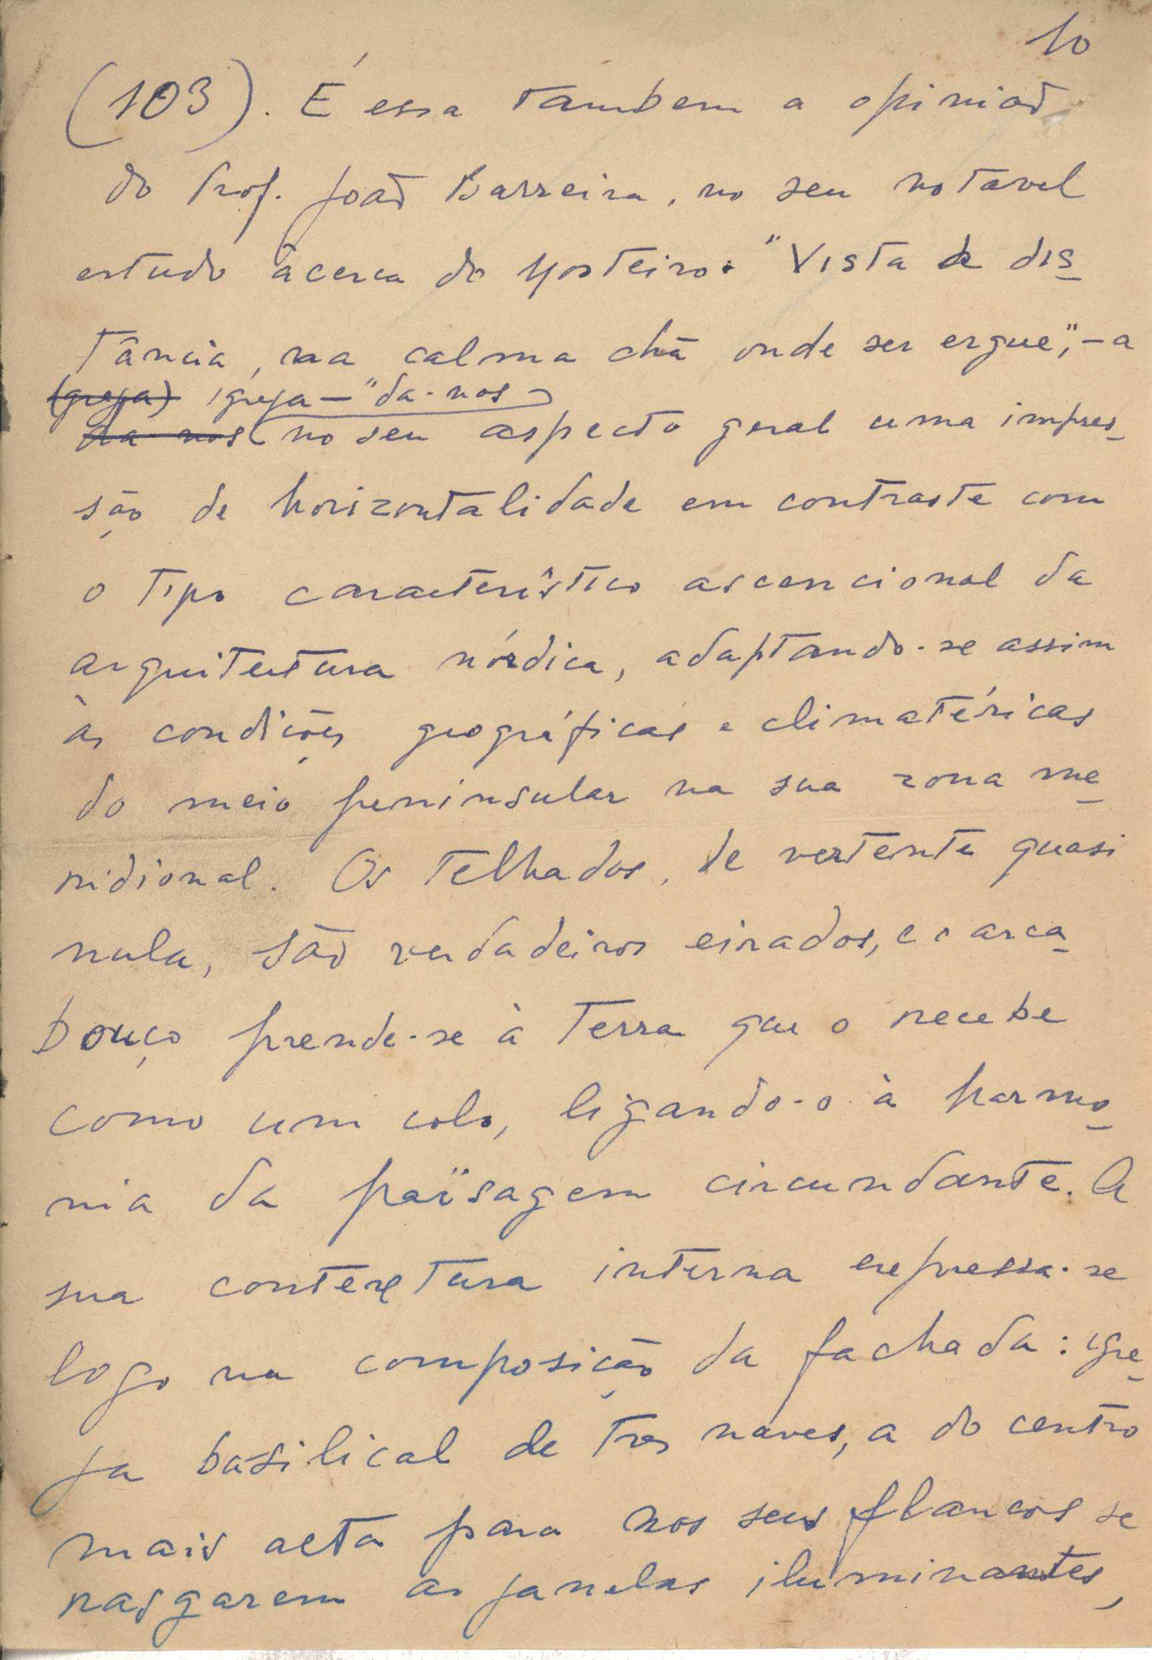 10
(103). É essa tambem a opinião
do Prof. João Barreira, no seu notavel
estudo àcerca do Mosteiro: "Vista de dis-
tância, na calma chã onde ser ergue", - a
(igreja) igreja - "da-nos
da-nos no seu aspecto geral uma impres-
são de horizontalidade em contraste com
o tipo característico ascencional da
arquitectura nórdica, adaptando-se assim
às condições geográficas e climatéricas
do meio peninsular na sua zona me-
ridional. Os telhados, de vertente quasi
nula, são verdadeiros eirados, e o arca-
bouço prende-se à terra que o recebe
como um colo, ligando-o à harmo-
nia da païsagem circundante. A
sua contextura interna expressa-se
logo na composição da fachada: igre-
ja basilical de tres naves, a do centro
mais alta para nos seus flancos se
rasgarem as janelas iluminantes,